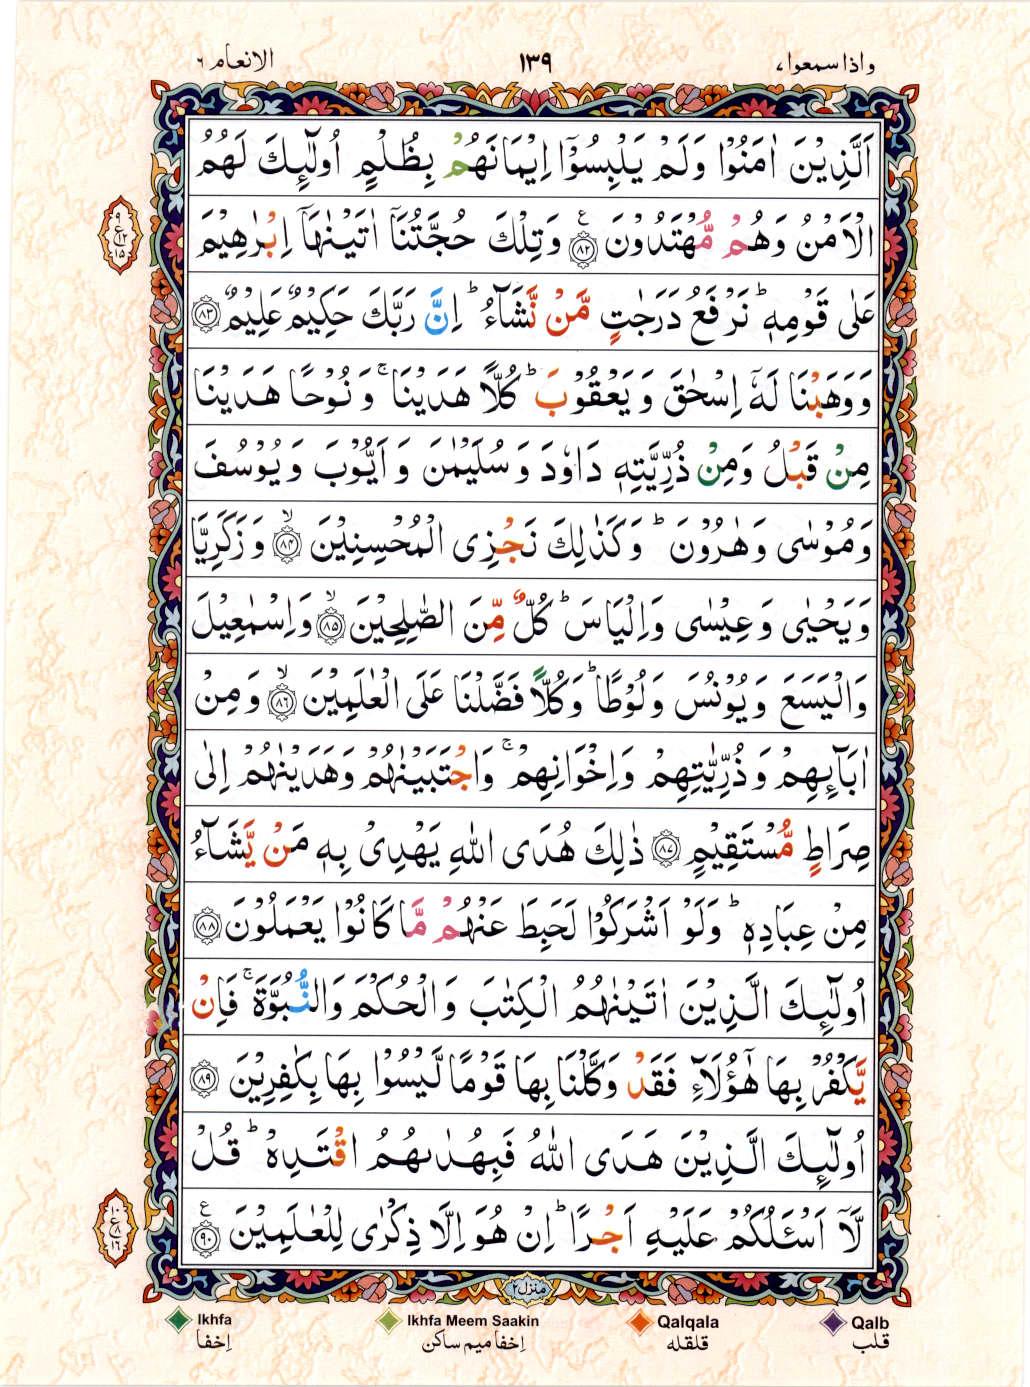 واذاسمعوا ٧ ١٣٩ الانعام ٦
اَلَّذِيْنَ اٰمَنُوْا وَلَمْ يَلْبِسُوْۤا اِيْمَانَهُمْ بِظُلْمٍ اُولٰٓئِكَ لَهُمُ
الْاَمْنُ وَهُمْ مُّهْتَدُوْنَ ﴿۸۲﴾ ع وَتِلْكَ حُجَّتُنَاۤ اٰتَيْنٰهَاۤ اِبْرٰهِيْمَ
٩
ع
١٢
١٥
عَلٰى قَوْمِهٖ ؕ نَرْفَعُ دَرَجٰتٍ مَّنْ نَّشَآءُ ؕ اِنَّ رَبَّكَ حَكِيْمٌ عَلِيْمٌ ﴿۸۳﴾
وَوَهَبْنَا لَهٗۤ اِسْحٰقَ وَيَعْقُوْبَ ؕ كُلًّا هَدَيْنَا ۚ وَنُوْحًا هَدَيْنَا
مِنْ قَبْلُ وَمِنْ ذُرِّيَّتِهٖ دَاوٗدَ وَسُلَيْمٰنَ وَاَيُّوْبَ وَيُوْسُفَ
وَمُوْسٰى وَهٰرُوْنَ ؕ وَكَذٰلِكَ نَجْزِى الْمُحْسِنِيْنَ ﴿۸۴﴾ ۙ وَزَكَرِيَّا
وَيَحْيٰى وَعِيْسٰى وَاِلْيَاسَ ؕ كُلٌّ مِّنَ الصّٰلِحِيْنَ ﴿۸۵﴾ ۙ وَاِسْمٰعِيْلَ
وَالْيَسَعَ وَيُوْنُسَ وَلُوْطًا ؕ وَكُلًّا فَضَّلْنَا عَلَى الْعٰلَمِيْنَ ﴿۸۶﴾ ۙ وَمِنْ
اٰبَآئِهِمْ وَذُرِّيّٰتِهِمْ وَاِخْوَانِهِمْ ۚ وَاجْتَبَيْنٰهُمْ وَهَدَيْنٰهُمْ اِلٰى
صِرَاطٍ مُّسْتَقِيْمٍ ﴿۸۷﴾ ذٰلِكَ هُدَى اللّٰهِ يَهْدِىْ بِهٖ مَنْ يَّشَآءُ
مِنْ عِبَادِهٖ ؕ وَلَوْ اَشْرَكُوْا لَحَبِطَ عَنْهُمْ مَّا كَانُوْا يَعْمَلُوْنَ ﴿۸۸﴾
اُولٰٓئِكَ الَّذِيْنَ اٰتَيْنٰهُمُ الْكِتٰبَ وَالْحُكْمَ وَالنُّبُوَّةَ ۚ فَاِنْ
يَّكْفُرْ بِهَا هٰۤؤُلَآءِ فَقَدْ وَكَّلْنَا بِهَا قَوْمًا لَّيْسُوْا بِهَا بِكٰفِرِيْنَ ﴿۸۹﴾
اُولٰٓئِكَ الَّذِيْنَ هَدَى اللّٰهُ فَبِهُدٰٮهُمُ اقْتَدِهْ ؕ قُلْ
لَّاۤ اَسْئَلُكُمْ عَلَيْهِ اَجْرًا ؕ اِنْ هُوَ اِلَّا ذِكْرٰى لِلْعٰلَمِيْنَ ﴿۹۰﴾ ع
١٠
ع
٨
١٦
منزل ٢
Ikhfa Ikhfa Meem Saakin Qalqala Qalb
اِخفا اِخفا میم ساکن قلقله قلب